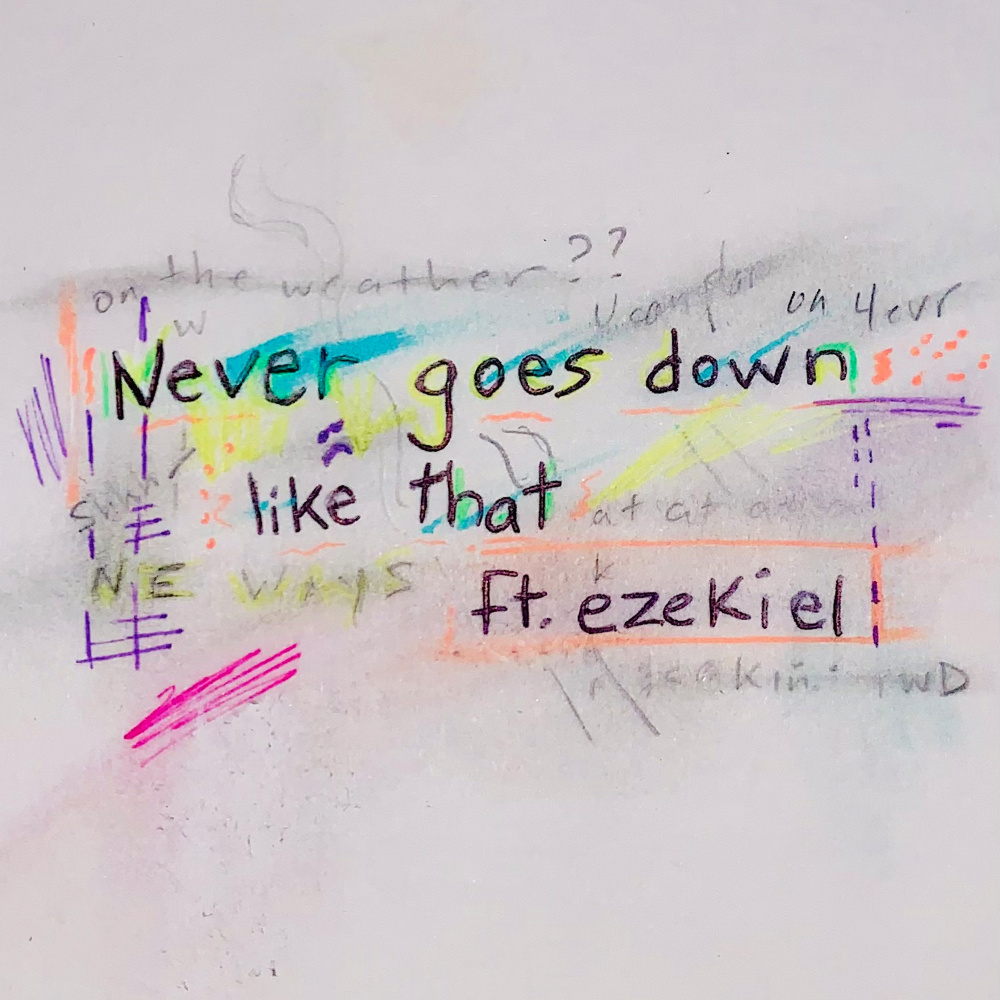 on the weather??
on 4evr
w
Never goes down
like that
at at
NE WAYS
k
ft. ezekiel